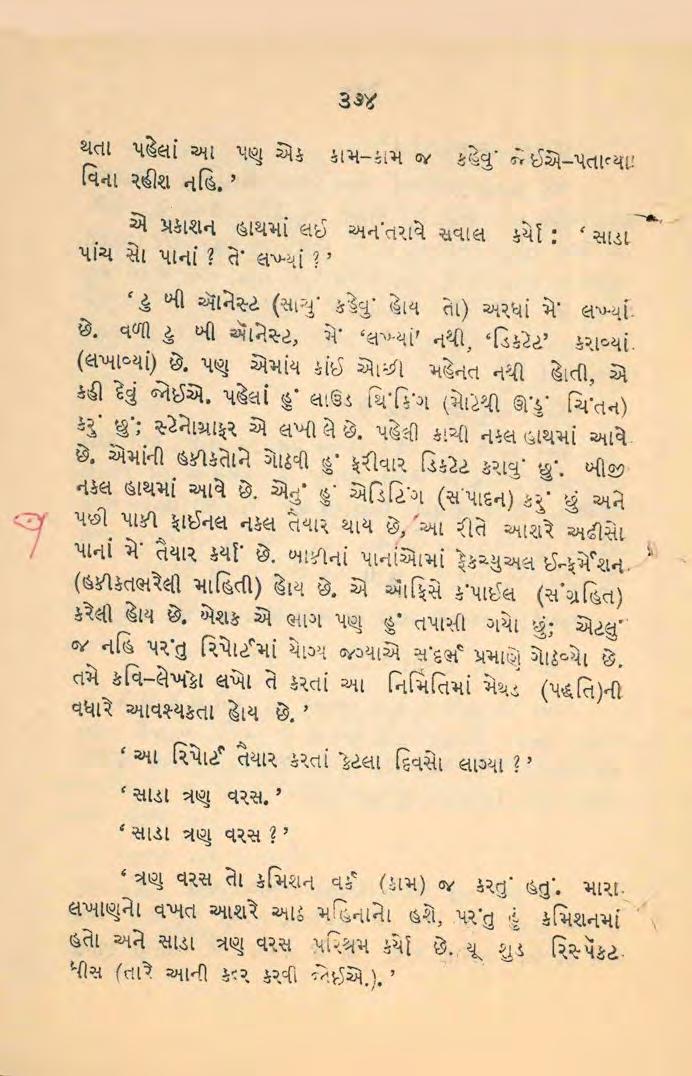 ૩૭૪
થતા પહેલાં આ પણ એક કામ–કામ જ કહેવું જોઈએ–પતાવ્યા
વિના રહીશ નહિ.’
એ પ્રકાશન હાથમાં લઈ અનંતરાવે સવાલ કર્યો : ‘સાડા
પાંચ સો પાનાં ? તેં લખ્યાં ?’
‘ટુ બી ઑનેસ્ટ (સાચું કહેવું હોય તો) અરધાં મેં લખ્યાં
છે. વળી ટુ બી ઑનેસ્ટ, મેં ‘લખ્યાં’ નથી, ‘ડિક્ટેટ’ કરાવ્યાં
(લખાવ્યાં) છે. પણ એમાંય કાંઈ ઓછી મહેનત નથી હોતી, એ
કહી દેવું જોઈએ. પહેલાં હું લાઉડ થિંકિંગ (મોટેથી ઊંડું ચિંતન)
કરું છું; સ્ટેનોગ્રાફર એ લખી લે છે. પહેલી કાચી નકલ હાથમાં આવે
છે. એમાંની હકીકતોને ગોઠવી હું ફરીવાર ડિક્ટેટ કરાવું છું. બીજી
નકલ હાથમાં આવે છે. એનું હું એડિટિંગ (સંપાદન) કરું છું અને
પછી પાકી ફાઈનલ નકલ તૈયાર થાય છે, આ રીતે આશરે અઢીસો
પાનાં મેં તૈયાર કર્યાં છે. બાકીનાં પાનાંઓમાં ફેકચ્યુઅલ ઈન્ફર્મેશન
(હકીકતભરેલી માહિતી) હોય છે. એ ઑફિસે કંપાઈલ (સંગ્રહિત)
કરેલી હોય છે. બેશક એ ભાગ પણ હું તપાસી ગયો છું; એટલું
જ નહિ પરંતુ રિપોર્ટમાં યોગ્ય જગ્યાએ સંદર્ભ પ્રમાણે ગોઠવ્યો છે.
તમે કવિ–લેખકો લખો તે કરતાં આ નિર્મિતિમાં મેથડ (પદ્ધતિ)ની
વધારે આવશ્યકતા હોય છે.’
‘આ રિપોર્ટ તૈયાર કરતાં કેટલા દિવસો લાગ્યા ?’
‘સાડા ત્રણ વરસ.’
‘સાડા ત્રણ વરસ ?’
‘ત્રણ વરસ તો કમિશન વર્ક (કામ) જ કરતું હતું. મારા
લખાણનો વખત આશરે આઠ મહિનાનો હશે, પરંતુ હું કમિશનમાં
હતો અને સાડા ત્રણ વરસ પરિશ્રમ કર્યો છે. યૂ શુડ રિસ્પૅક્ટ
ધીસ (તારે આની કદર કરવી જોઈએ.).’